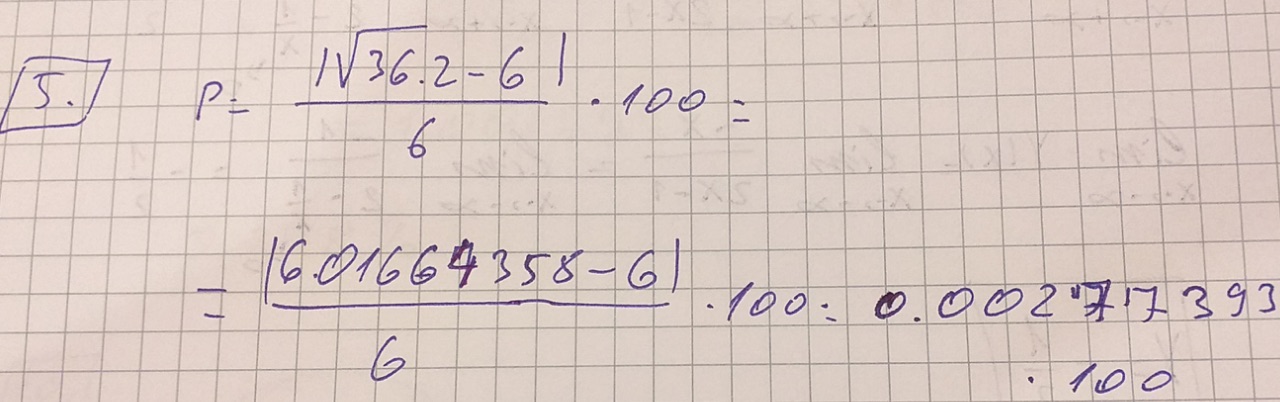 5. P = |√36.2 - 6| / 6 · 100 =
= |6.01664358 - 6| / 6 · 100 = 0.00277393
· 100